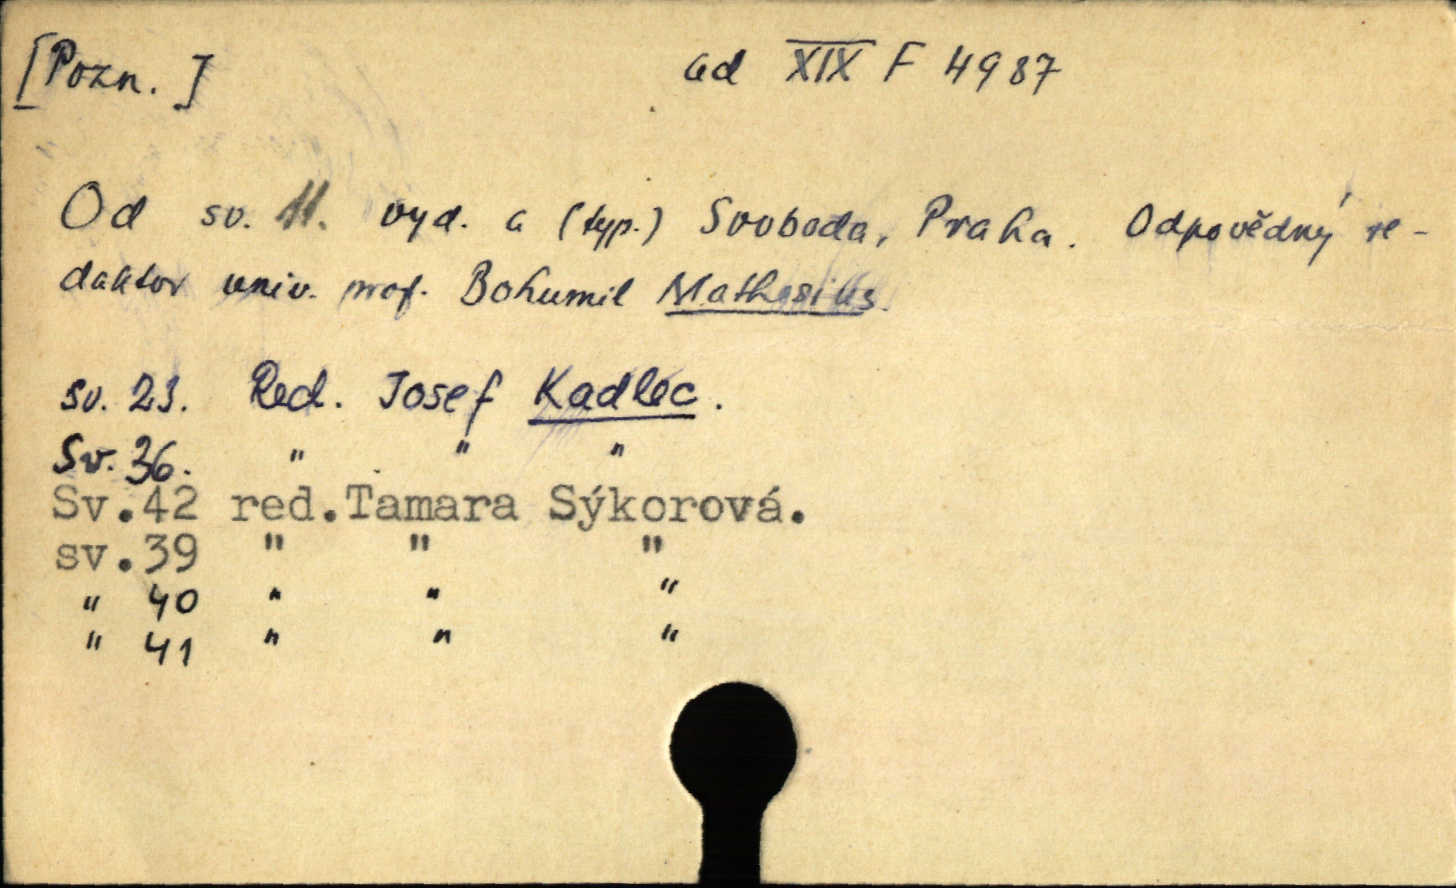 [Pozn.] ad XIX F 4987
Od sv. 11. vyd. a (typ.) Svoboda, Praha. Odpovědný re-
daktor univ. prof. Bohumil Mathesius.
sv. 23. Red. Josef Kadlec.
Sv. 36. " " "
Sv.42 red.Tamara Sýkorová.
sv.39 " " "
" 40 " " "
" 41 " " "